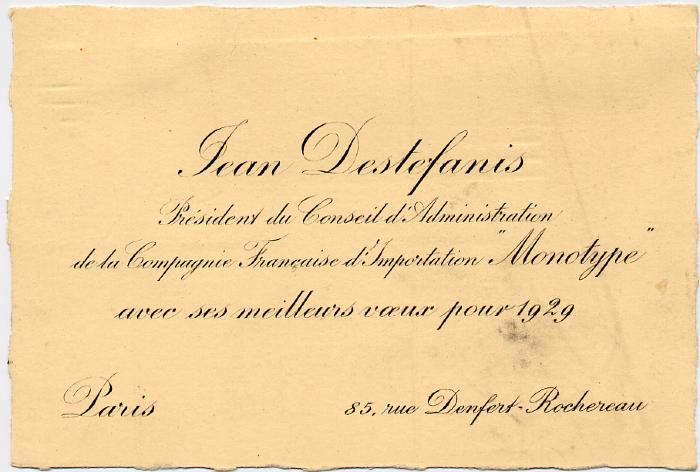 Jean Destefanis
Président du Conseil d'Administration
de la Compagnie Française d'Importation "Monotype"
avec ses meilleurs vœux pour 1929
Paris
85, rue Denfert-Rochereau